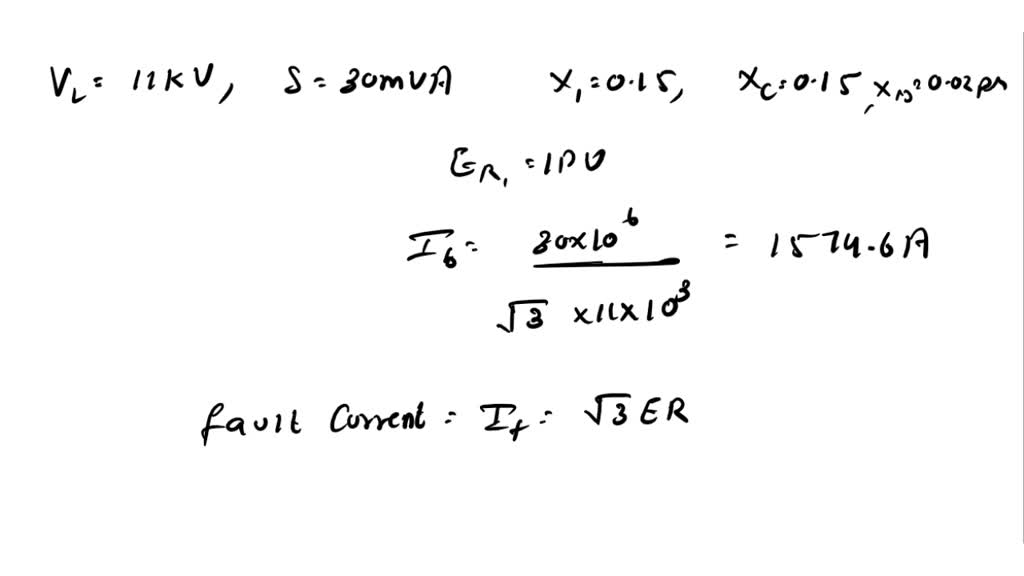 V_L = 11KV, S = 30mVA X_1 = 0.15, X_C = 0.15, X_n = 0.02pu
E_R1 = 1PU
I_b = 30×10^6 / √3 ×11×10^3 = 1574.6A
fault Current = I_f = √3 ER